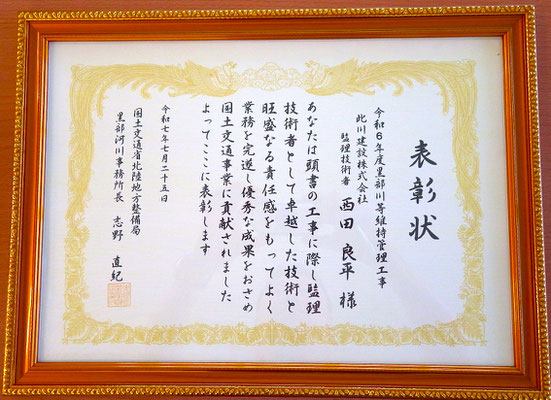 表彰状
令和6年度黒部川等維持管理工事
此川建設株式会社
監理技術者 西田 良平 様
あなたは頭書の工事に際し監理
技術者として卓越した技術と
旺盛なる責任感をもってよく
業務を完遂し優秀な成果をおさめ
国土交通事業に貢献されました
よってここに表彰します
令和七年七月二十五日
国土交通省北陸地方整備局
黒部河川事務所長 志野 直紀